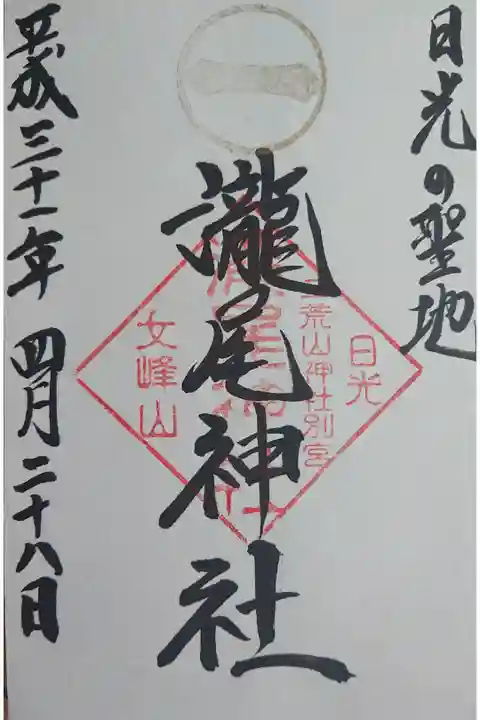 日光の聖地
瀧尾神社
平成三十一年 四月二十八日
一
日光
二荒山神社別宮
女峰山